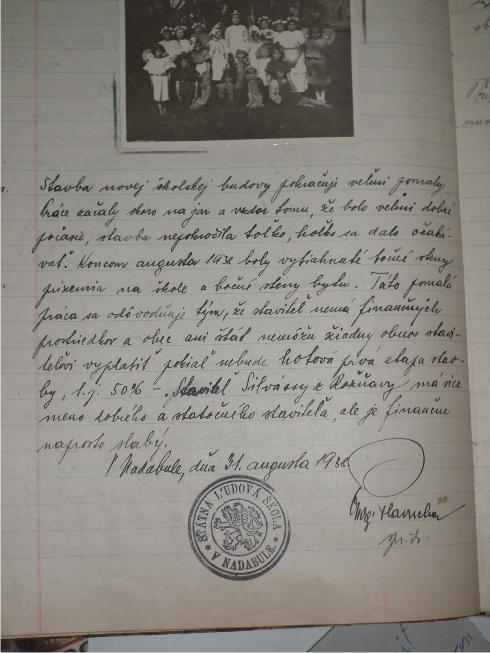 Stavba novej školskej budovy pokračuje veľmi pomaly.
Práce začaly skoro na jar a vzdor tomu, že bolo veľmi dobré
počasie, stavba nepokročila toľko, koľko sa dalo očaká-
vať. Koncom augusta 1938 boly vytiahnuté bočné steny
prízemia na škole a bočné steny bytu. Táto pomalá
práca sa odôvodňuje tým, že staviteľ nemá finančných
prostriedkov a obec ani štát nemôžu žiadny obnos stavi-
teľovi vyplatiť pokiaľ nebude hotová prvá etapa stav-
by, t.j. 50% - Staviteľ Silvássy z Rožňavy má síce
meno dobrého a statočného staviteľa, ale je finančne
naprosto slabý.
V Nadabule, dňa 31. augusta 1938
STÁTNA ĽUDOVÁ ŠKOLA
V NADABULE.